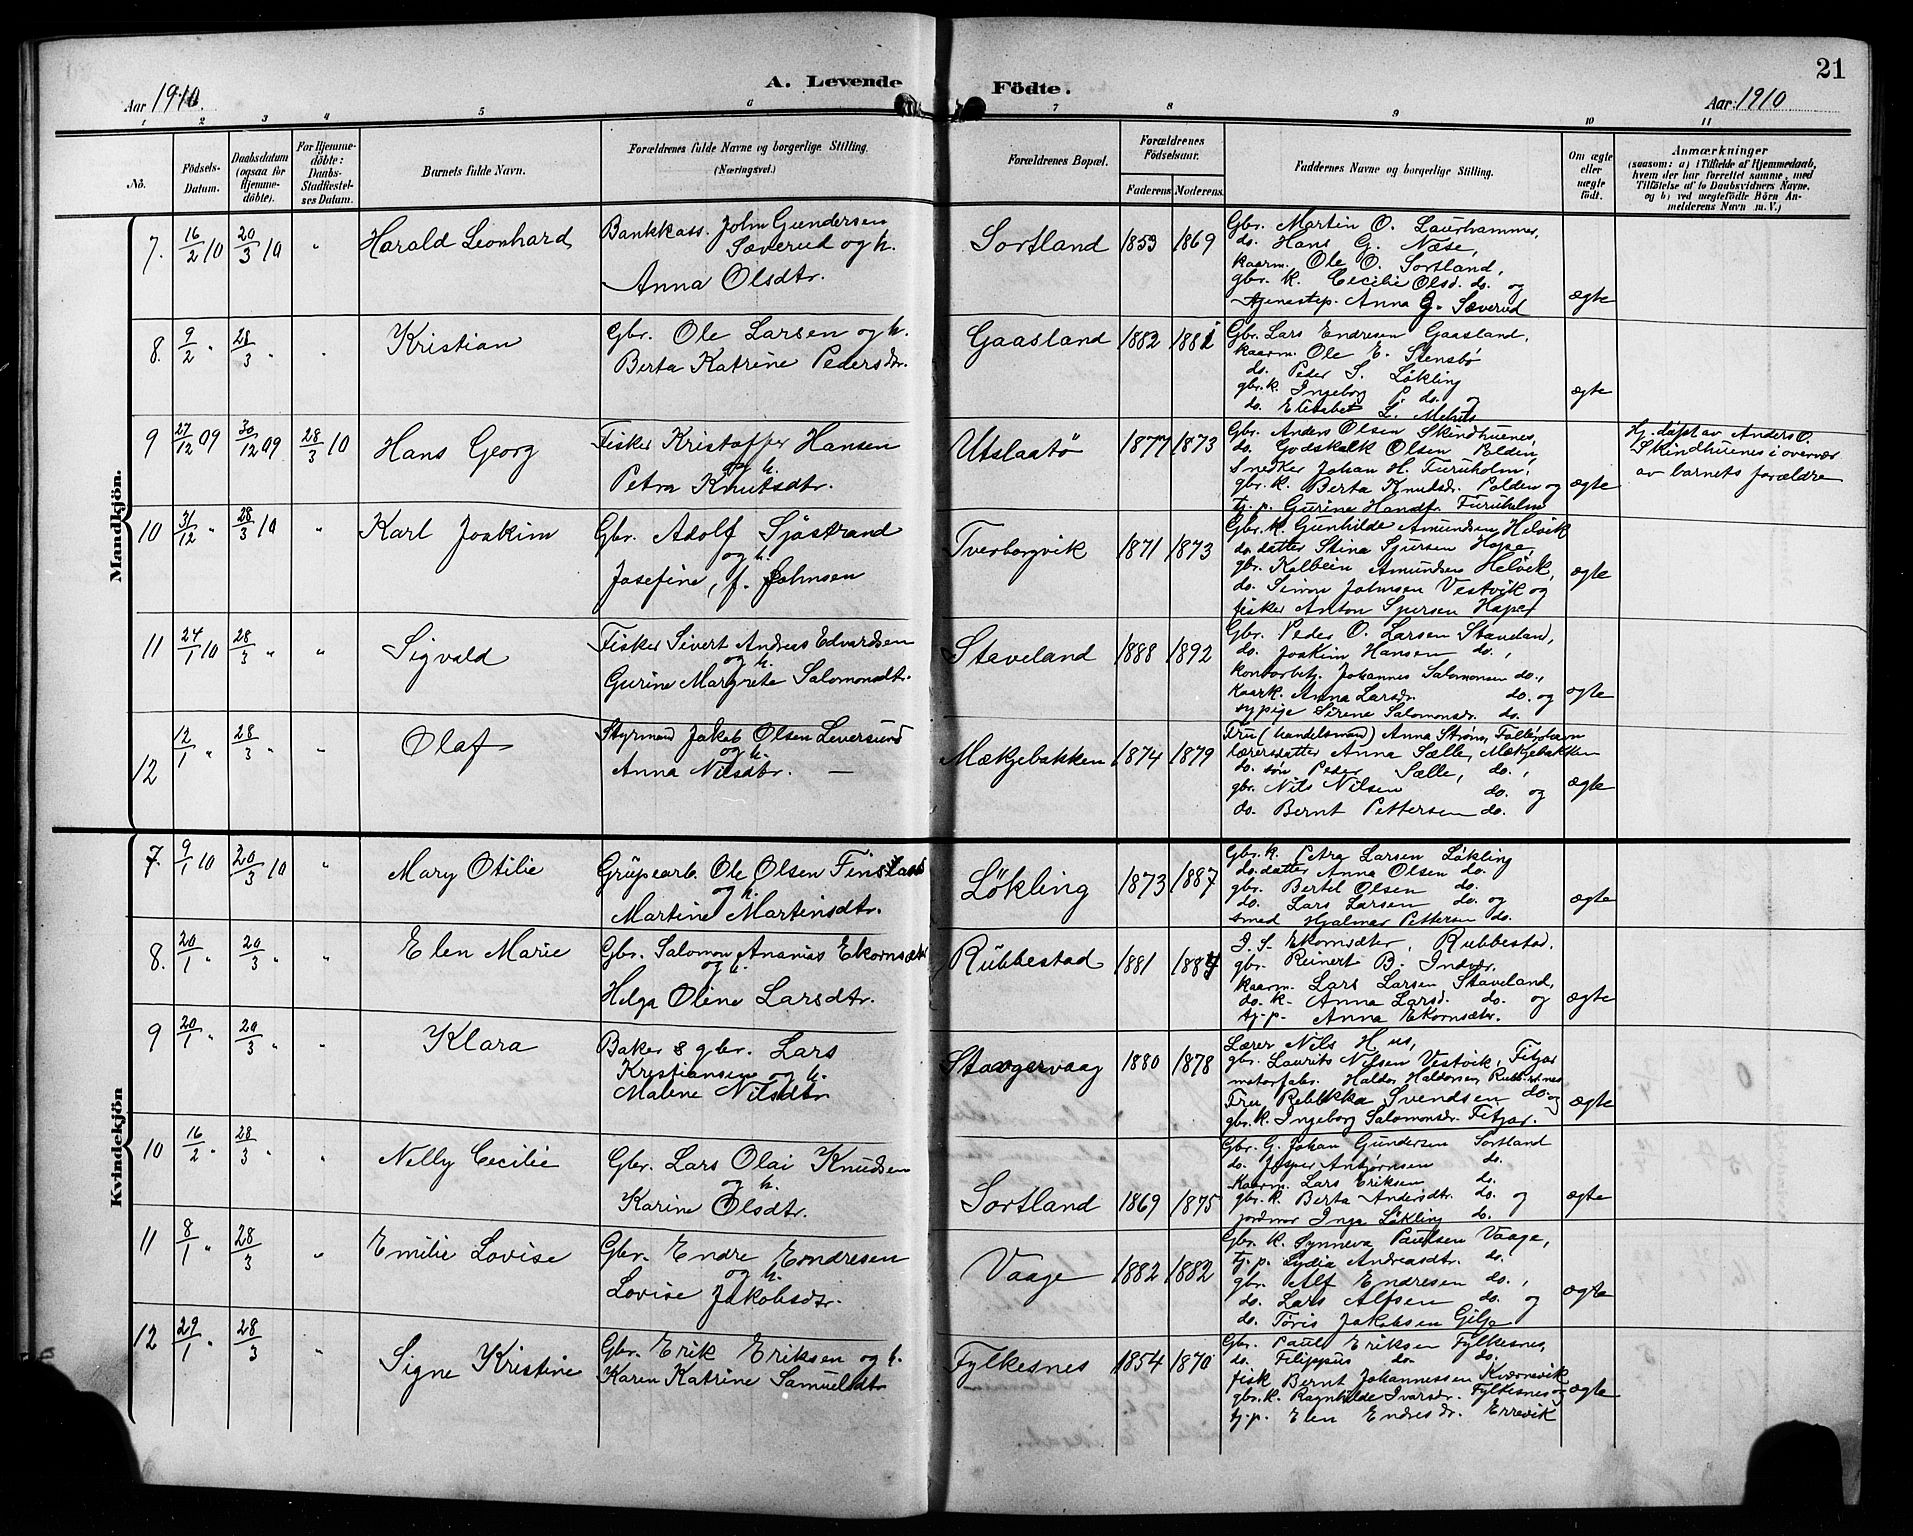 A. Levende Födte.
21
Aar 1910.
Aar: 1910
1 2 3 4 5 6 7 8 9 10 11
No.
Födsels-Datum.
Daabsdatum (ogsaa for Hjemmedöbte).
For Hjemmedöbte: Daabs-Stadfæstelses Datum.
Barnets fulde Navn.
Forældrenes fulde Navne og borgerlige Stilling. (Næringsvei.)
Forældrenes Bopæl.
Forældrenes Födselsaar.
Faderens. Moderens.
Faddernes Navne og borgerlige Stilling.
Om ægte eller uægte födt.
Anmærkninger
(saasom: a) i Tilfælde af Hjemmedaab,
hvem der har forrettet samme, med
Tilföielse af to Daabsvidners Navne.
og b) ved uægtefödte Börn An-
melderens Navn m. V.)
Mandkjön.
7. 16/2 10 20/3 10 " Harald Leonhard
Bankkass. John Gundersen
Sæverud og h.
Anna Olsdtr.
Sortland 1853 1869
Gbr. Martin O. Laurhammer,
do. Hans G. Næse,
kaarm. Ole O. Sortland,
gbr. k. Cecilie Olsd. do. og
tjenestep. Anna G. Sæverud
ægte
8. 9/2 " 28/3 " Kristian
Gbr. Ole Larsen og h.
Berta Katrine Pedersdr.
Gaasland 1882 1881
Gbr. Lars Endresen Gaasland,
kaarm. Ole E. Stensbø
do. Peder S. Løkling
gbr. k. Ingeborg P. do. og
do. Elisabet L. Mehus
ægte
9 27/12 09 30/12 09 28/3 10 Hans Georg
Fisker Kristoffer Hansen
og h.
Petra Knutsdtr.
Utslaatø 1877 1873
Gbr. Anders Olsen Skindhuenes,
do. Godskalk Olsen Polden,
Snedker Johan H. Furuholm,
gbr. k. Berta Knudsdr. Polden og
tj. p. Gurine Handtr. Furuholm
ægte
Hj. døpt av Anders O.
Skindhuenes i overvær
av barnets forældre
10 31/12 " 28/3 10 " Karl Joakim
Gbr. Adolf Sjøstrand
og h.
Josefine, f. Johnsen
Tverborgvik 1871 1873
Gbr. k. Gunhilde Amundsen Helvik
do. datter Stina Sjursen Hope,
gbr. Kolbein Amundsen Helvik,
do. Simon Johnsen Vestvik og
fisker Anton Sjursen Hope
ægte
11 24/1 10 28/3 " " Sigvald
Fisker Sivert Andreas Edvardsen
og h.
Gurine Margrete Salomonsdtr.
Staveland 1888 1892
Gbr. Peder O. Larsen Staveland,
do. Joakim Hansen do.,
kontorbetj. Johannes Salomonsen do.,
Kaark. Anna Larsdr. do. og
sypige Sirene Salomonsdr. do.
ægte
12 12/1 " 28/3 " " Olaf
Styrmand Jakob Olsen Leversund
og h.
Anna Nilsdtr. —
Mækjebakken 1874 1879
Fru (handelsmand) Anna Strøm,
lærersdatter Anna Sælle, Mækjebakken
do. søn Peder Sælle, do.,
gbr. Nils Nilsen do. og
do. Bernt Pettersen do.
ægte
Kvindekjön
7. 9/1 10 20/3 10 " Mary Otilie
Grubearb. Ole Olsen Finsland
og h.
Martine Martinsdtr.
Løkling 1873 1887
Gbr. k. Petra Larsen Løkling
do. datter Anna Olsen do.
gbr. Bertel Olsen do.
do. Lars Larsen do. og
smed Hjalmar Pettersen do.
ægte
8. 20/1 " 20/3 " " Elen Marie
Gbr. Salomon Ananias Ekornsæter
og h.
Helga Oline Larsdtr.
Rubbestad 1881
J. S. Ekornsæter, Rubbestad.
gbr. Reinert B. Indvær.
Kaarm. Lars Larsen Staveland,
do. k. Anna Larsd. do. og
tj. p. Anna Ekornsæter.
ægte
9 20/1 " 20/3 " " Klara
Baker & gbr. Lars
Kristiansen og h.
Malene Nilsdtr
Stavgervaag 1880 1878
Lærer Nils Hus,
gbr. Laurits Nilsen Vestvik, Fitjar
motorfabr. Haldor Haldorsen,
Fru Rebekka Svendsen do. og
gbr. k. Ingeborg Salomonsdr. Fitjar.
ægte
10 16/2 " 28/3 " " Nelly Cecilie
Gbr. Lars Olai Knudsen
og h.
Karine Olsdtr.
Sortland 1869 1875
Gbr. G. Johan Gundersen Sortland
do. Jesper Anbjørnsen do.
Kaarm. Lars Eriksen do.
gbr. k. Berta Andersdtr. do. og
jordmor Inga Løkling do.
ægte
11 8/1 " 28/3 " Emilie Lovise
Gbr. Endre Endresen
og h.
Lovise Jakobsdtr.
Vaage 1882 1882
Gbr. k. Synneva Paulsen Vaage,
tj. p. Lydia Andreasdtr. do.
gbr. Alf Endresen do.,
do. Lars Alfsen do. og
do. Tøris Jakobsen Gilje
ægte
12 29/1 " 28/3 " Signe Kristine
Gbr. Erik Eriksen og h.
Karen Katrine Samuelsdtr
Fylkesnes 1854 1870
Gbr. Paul Eriksen Fylkesnes,
do. Filippus do. do.
fisk Bernt Johannessen Kvernevik
gbr. k. Ragnhilde Ivarsdr. Fylkesnes og
tj. p. Elen Endresdr. Errevik
ægte